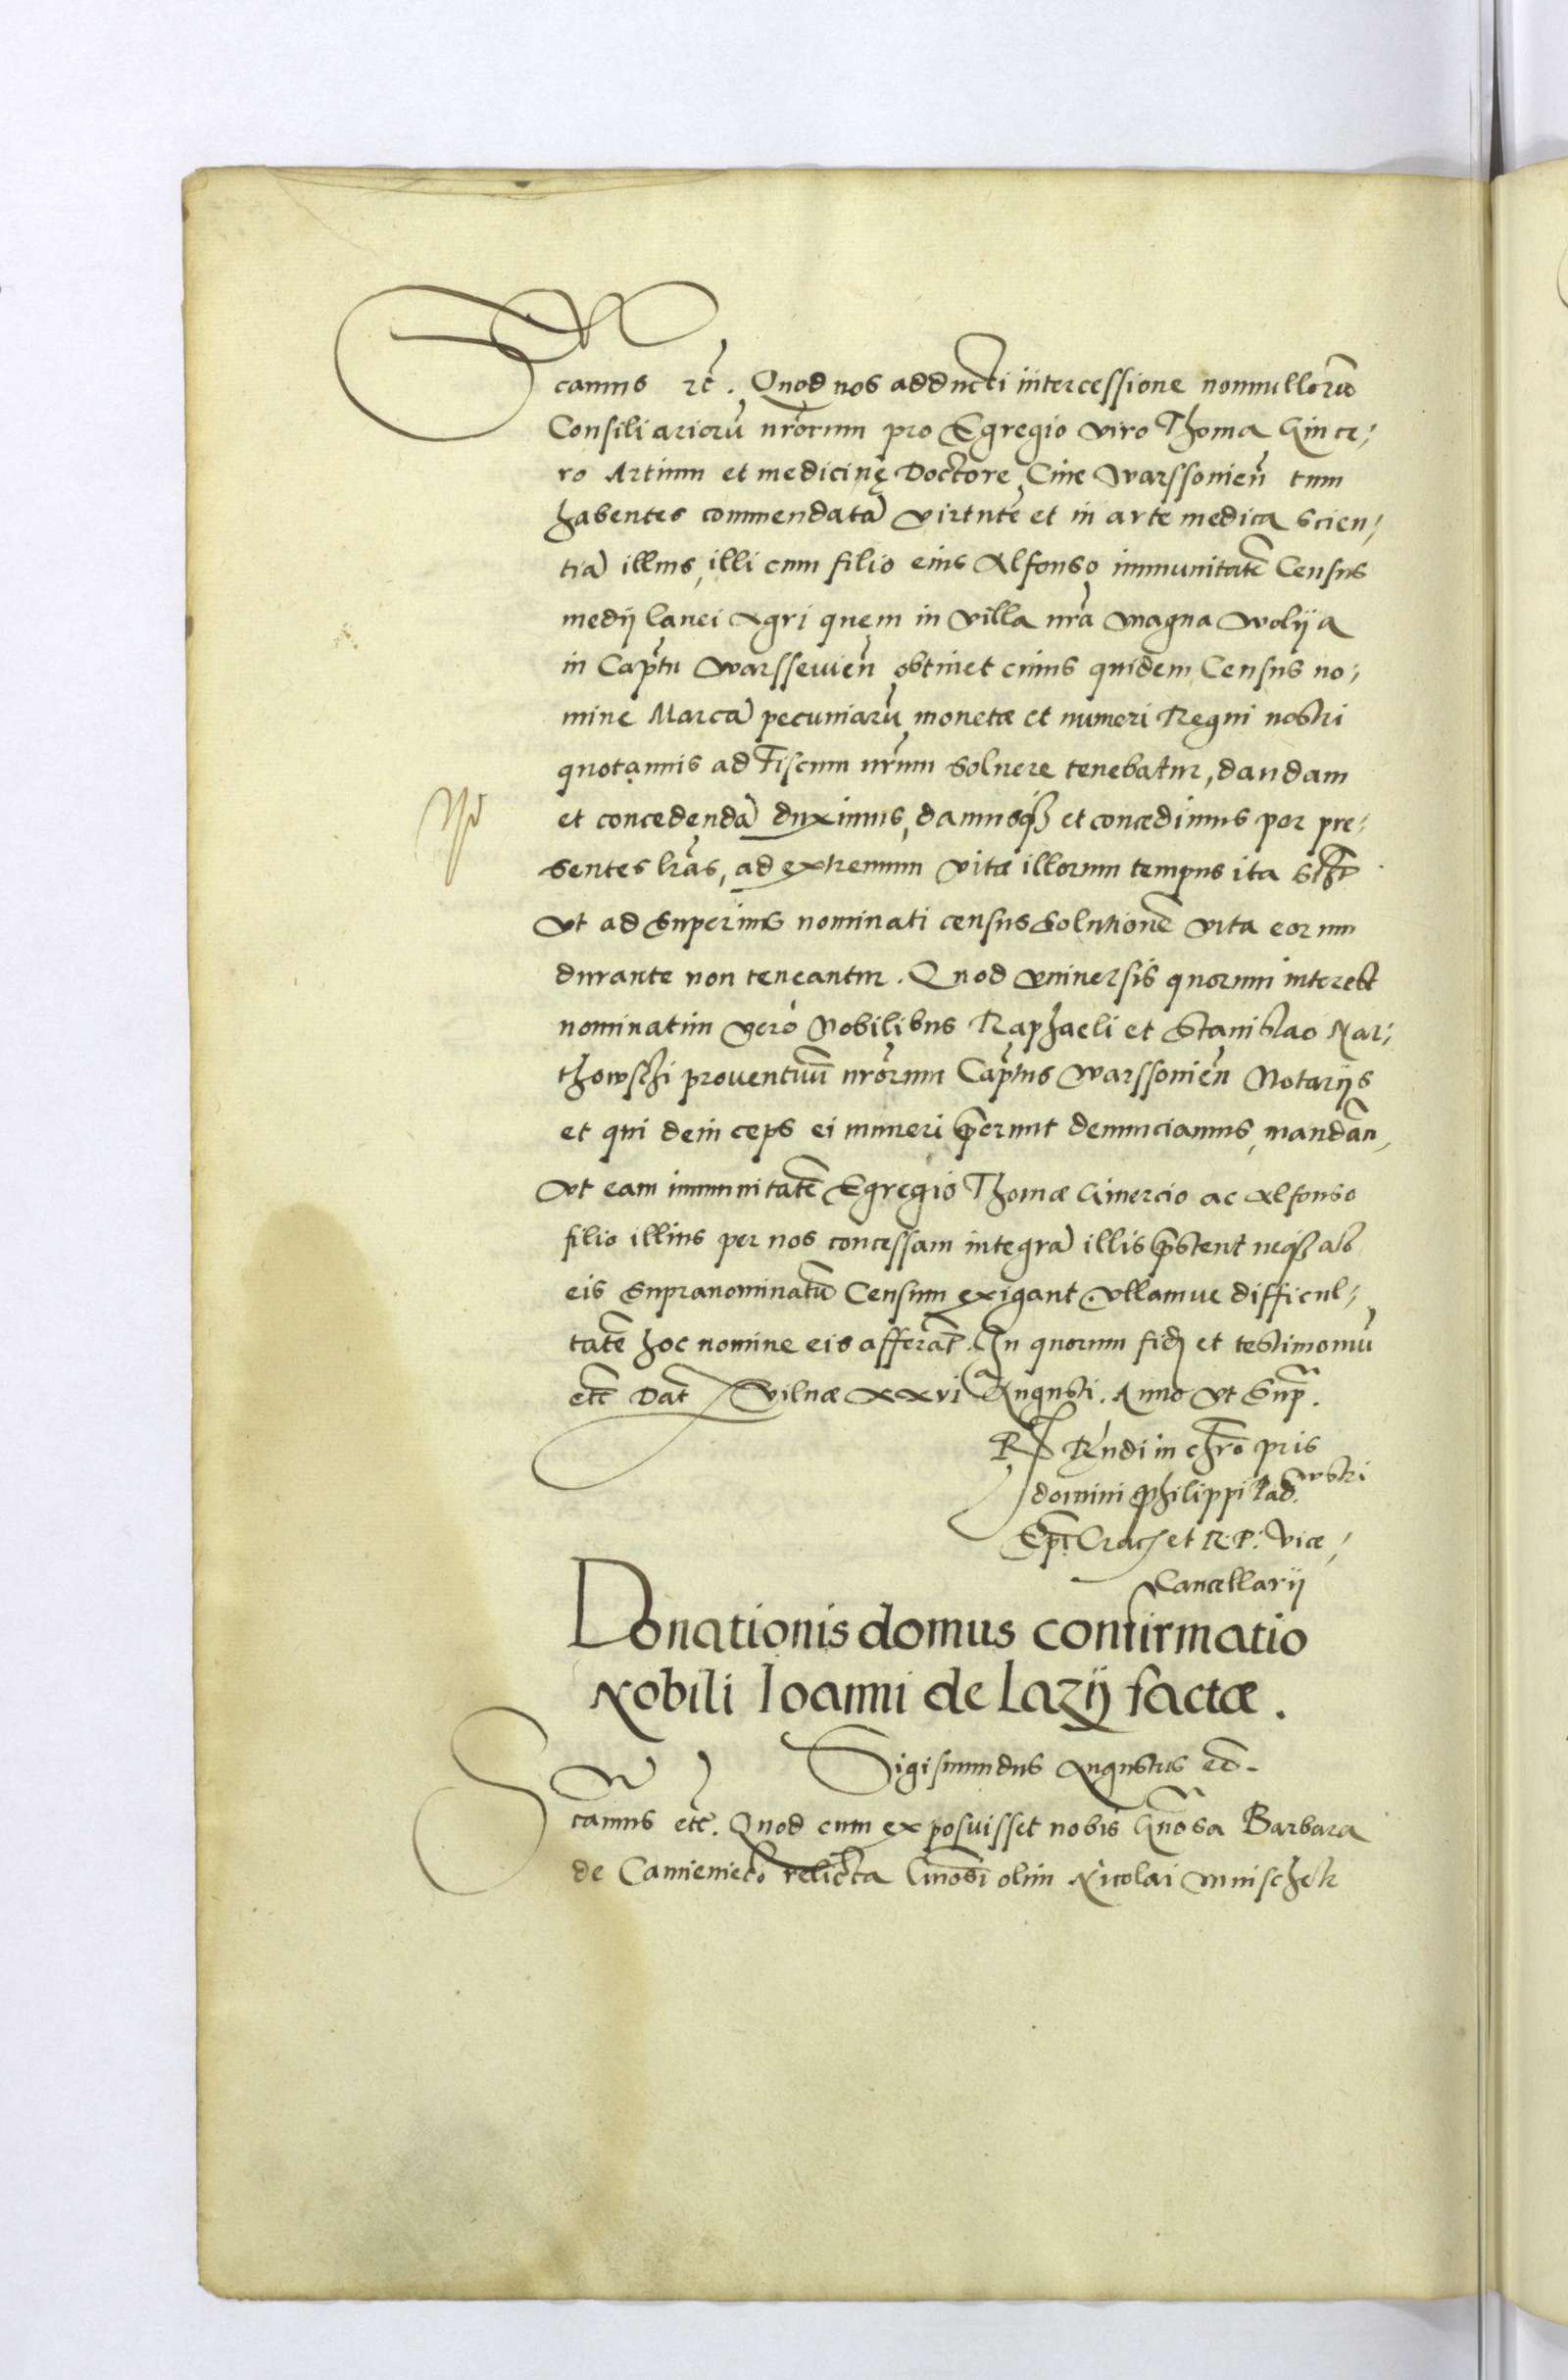 camus rc̃. Quod nos adducti intercessione nonnullorũ
Consiliariorũ nr̃orum pro Egregio viro Thoma Giner;
ro Artium et medicinę Doctore, Ciue Warssouieñ tum
habentes commendatã virtutẽ et in arte medica scien;
tiã illius, illi cum filio eius Alfonso immunitatẽ Census
medij lanei Agri quem in villa nr̃a magna Wolija
in Cap̃tu Warsseuieñ obtinet cuius quidem Census no;
mine Marcã pecuniarũ monetæ et numeri Regni nostri
quotannis ad Fiscum nr̃um soluere tenebatur, dandam
et concedendã duximus, damusq; et concedimus per pre;
sentes lr̃as, ad extremum vitæ illorum tempus ita
vt ad superius nominati census solutionẽ vita eorum
durante non teneantur. Quod vniuersis quorum interest
nominatim vero Nobilibus Raphaeli et Stanislao Nar;
thowschi prouentuũ nr̃orum Cap̃tus Warssouieñ Notarijs
et qui deinceps ei muneri p̃erunt denunciamus, mandañ,
vt eam immunitatẽ Egregio Thomæ Ginercio ac Alfonso
filio illius per nos concessam integrã illis p̃stent neq; ab
eis supranominatũ Censum exigant vllamue difficul;
tatẽ hoc nomine eis afferãt. In quorum fid) et testimoniũ
etc̃ Dat̃ Vilnæ xxvi Augusti. Anno vt sup̃.
R̃ndi in chr̃o pr̃is
domini Philippi Pad.
Ep̃i Crac) et R. P. Vice;
Cancellarij
Donationis domus confirmatio
Nobili Ioanni de Lazij factæ.
Sigismundus Augustus
camus etc̃. Quod cum exposuisset nobis Gñosa Barbara
de Camieniecz relicta Gñosi olim Nicolai Mnischek